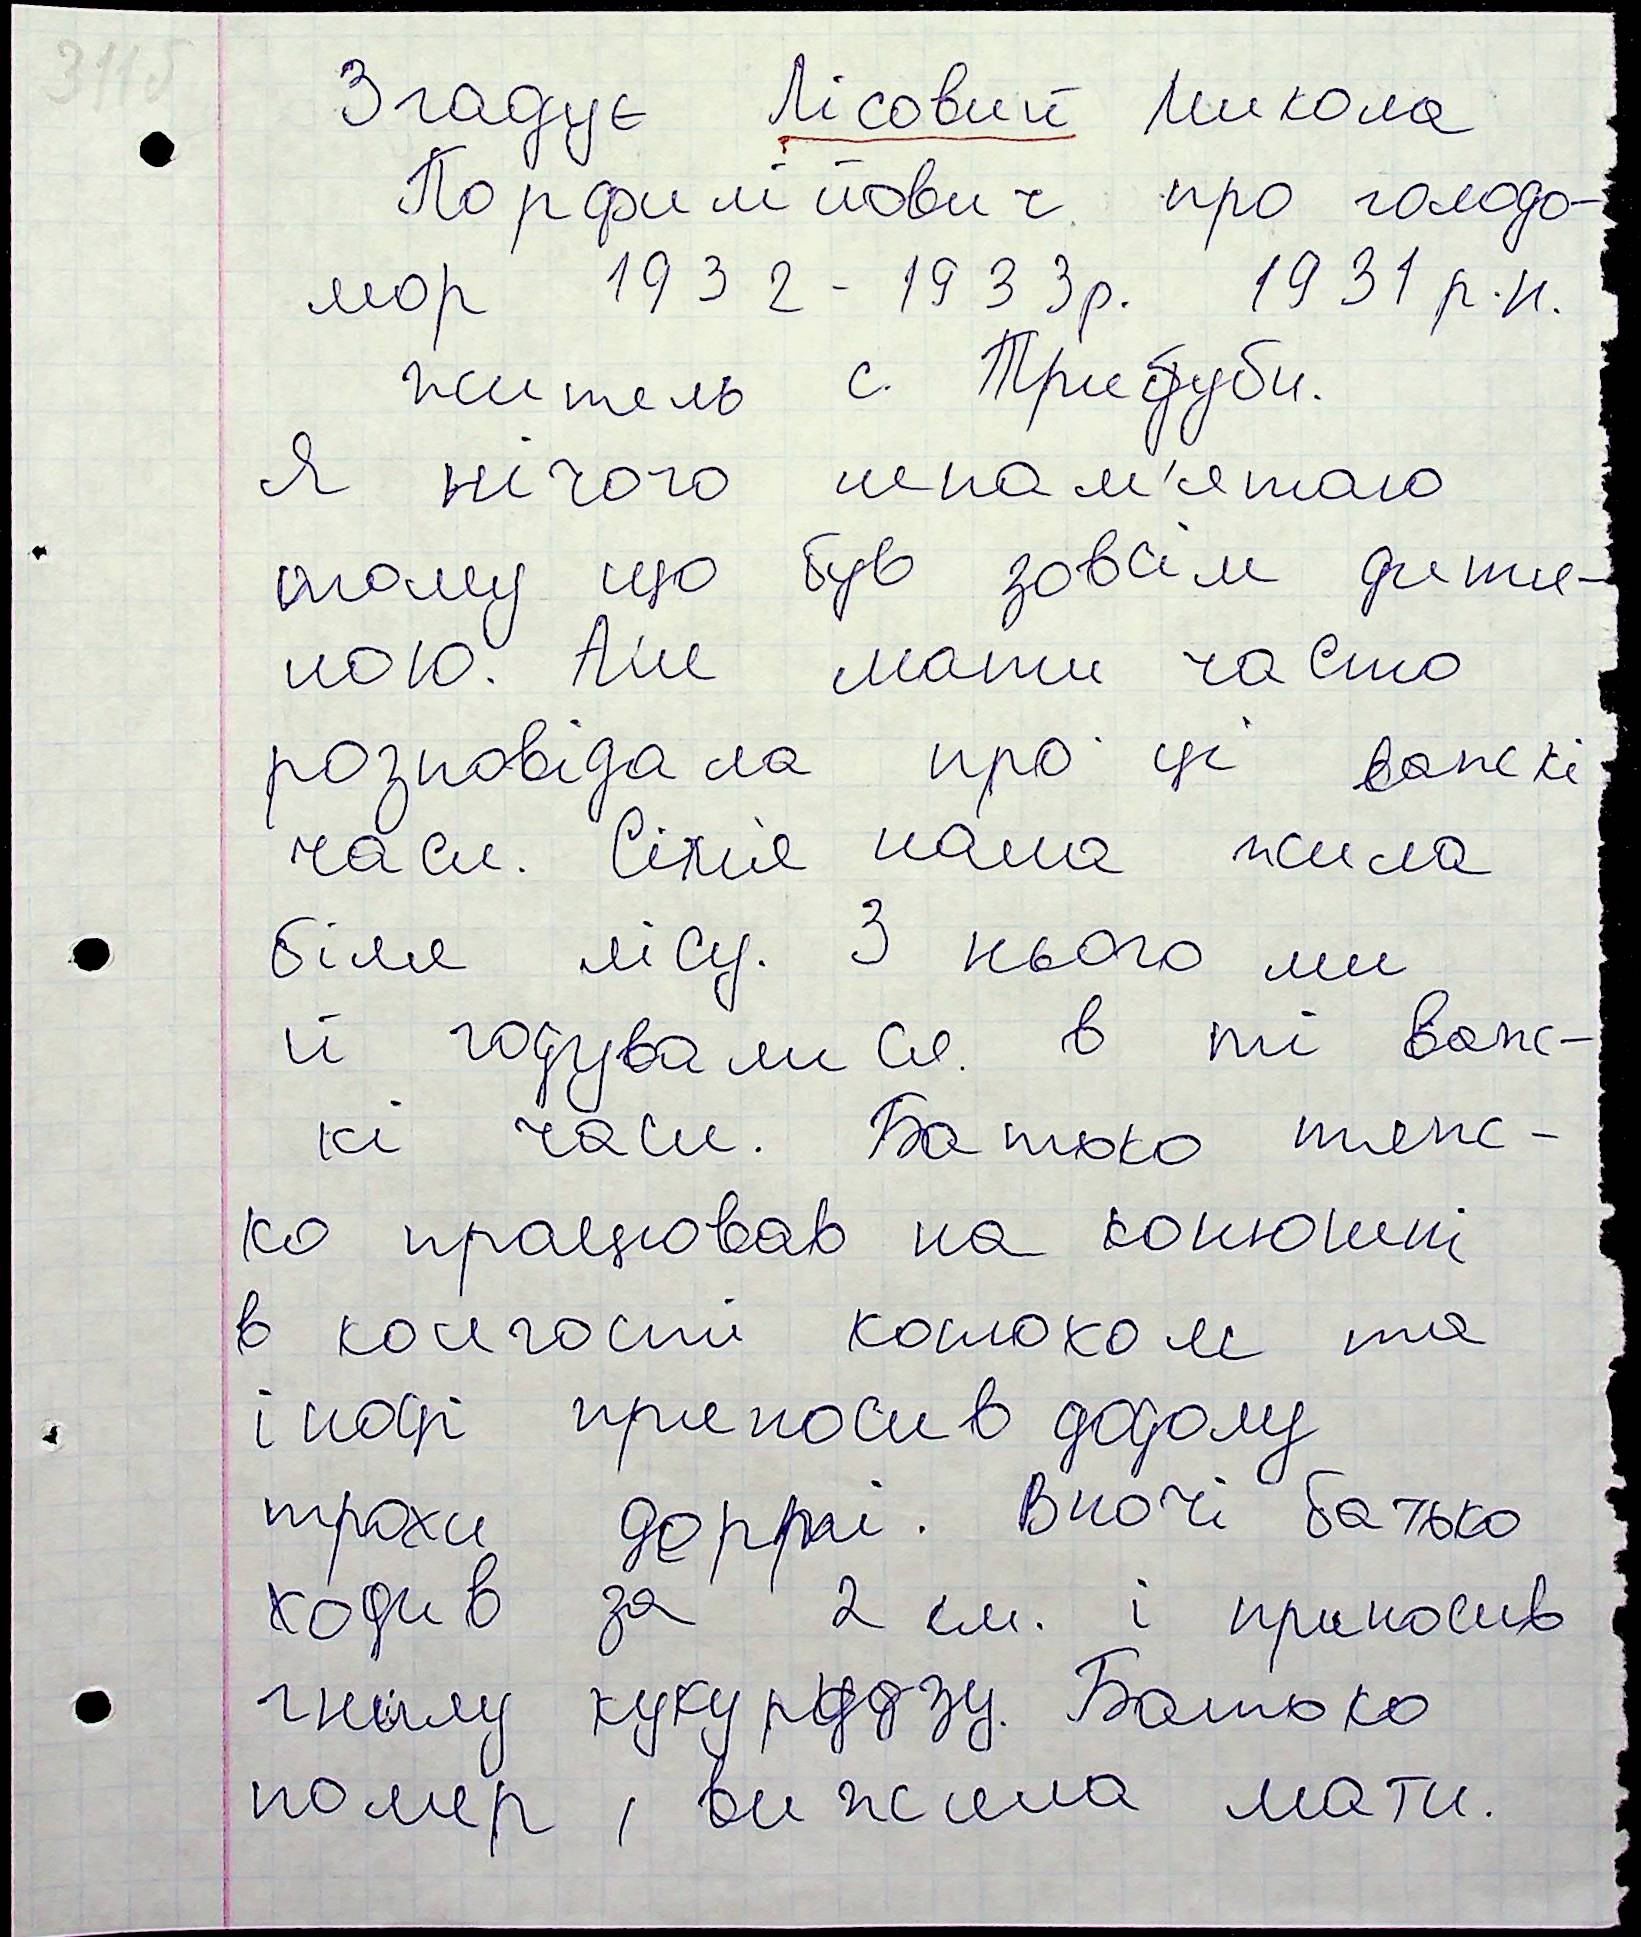 311б
Згадує Лісовий Микола
Порфилійович про голодо-
мор 1932-1933р. 1931р.н.
житель с. Тридуби.
Я нічого непам'ятаю
тому що був зовсім дити-
ною. Але мати часто
розповідала про ці важкі
часи. Сім'я наша жила
біля лісу. З нього ми
й годувались. в ті важ-
кі часи. Батько тяж-
ко працював на конюшні
в колгоспі конюхом та
іноді приносив додому
трохи дерті. Вночі батько
ходив за 2 км. і приносив
гнилу кукурудзу. Батько
помер, вижила мати.